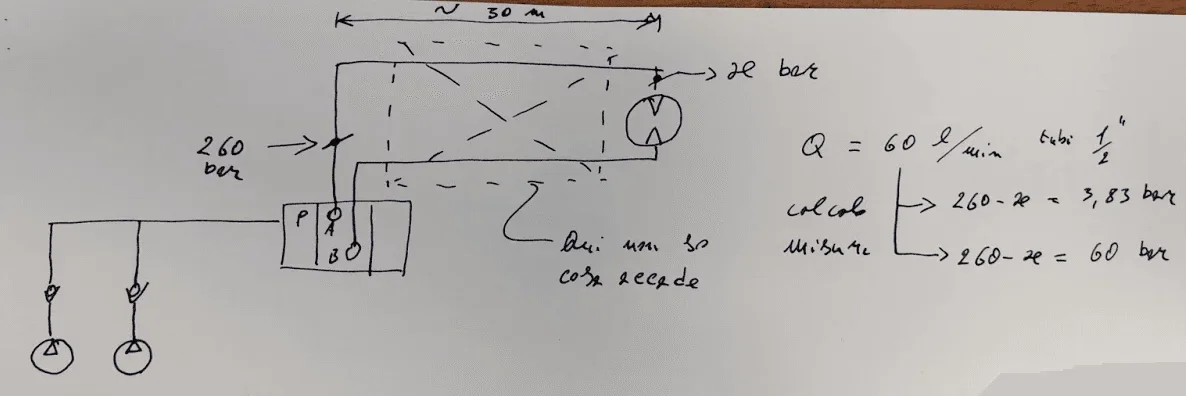 ~ 30 m
x bar
260
bar
Q = 60 l/min tubi 1/2"
calcolo → 260-x = 3,83 bar
misura → 260-x = 60 bar
P
A
B
Qui non so
cosa accade